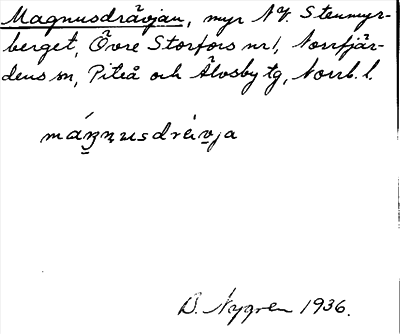 Magnusdrävjan, myr NV. Stenmyr-
berget, Övre Storfors nr 1, Norrfjär-
dens sn, Piteå och Älvsby tg, Norrb. l.
máŋnusdreivja
B. Nygren 1936.